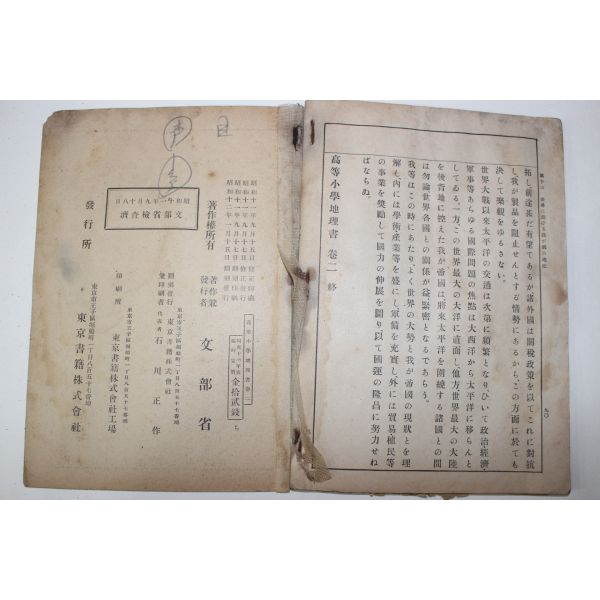 拓し前途甚だ有望であるが諸外國は關稅政策を以てこれに對抗
し、我が製品を阻止せんとする情勢にあるから、この方面に於ても
決して樂觀をゆるさない。
世界大戰以來太平洋の交通は次第に頻繁となり、ひいて政治經濟
軍事等あらゆる國際問題の焦點は大西洋から太平洋に移らんと
してゐる。一方この世界最大の大洋に直面し、他方世界最大の大陸
を後背地に控えた我が帝國は將來太平洋を圍繞する諸國との間
は勿論世界各國との關係が益緊密となるであらう。
我等はこの時にあたり、よく世界の大勢と我が帝國の現狀とを理
解し、內には學術產業等を盛にし、軍備を充實し、外には貿易植民等
の事業を奬勵して國力の伸展を圖り、以て國運の隆昌に努力せね
ばならぬ。
高等小學地理書 卷二 終
昭和十一年九月十五日
著作權所有
著作兼
發行者
文部省
金拾貳錢
東京市王子區堀船町一丁目八百五十七番地
東京書籍株式會社
代表者 石川正作
印刷所
東京市王子區堀船町一丁目八百五十七番地
東京書籍株式會社工場
昭和十一年九月十八日
文部省檢査濟
發行所
東京市王子區堀船町一丁目八百五十七番地
東京書籍株式會社